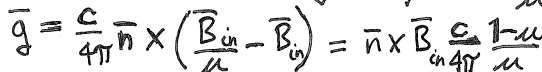 ḡ = c/4π n̄ × (B̄in/μ − B̄in) = n̄ × B̄in c/4π 1-μ/μ